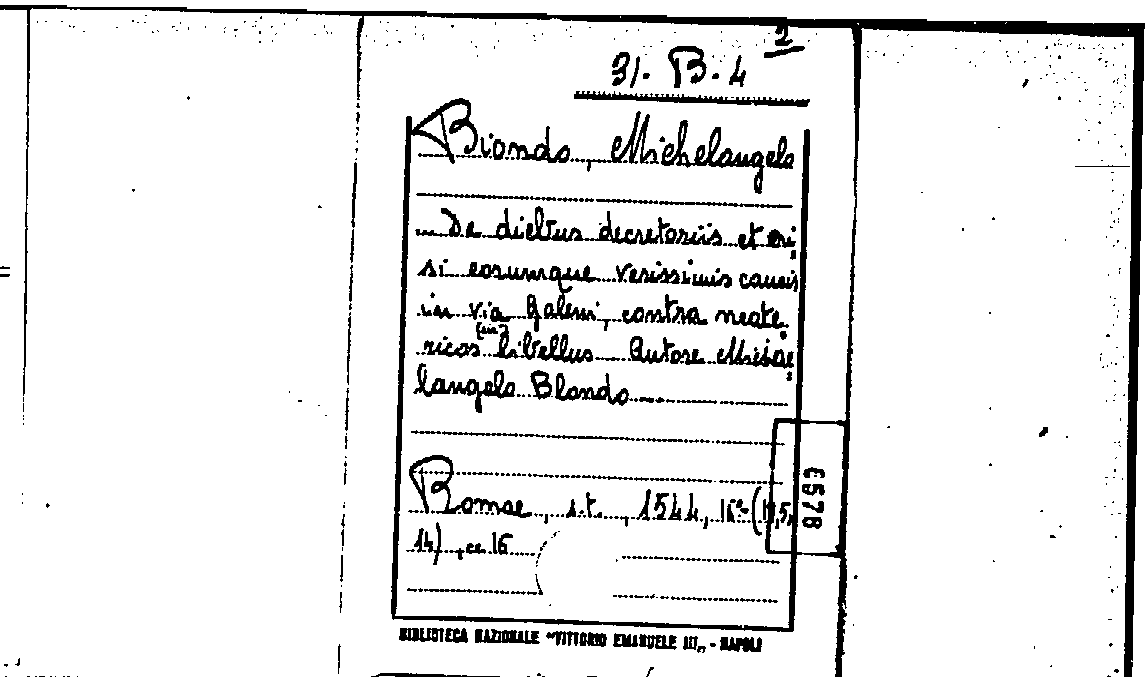 2
31. B. 4
Biondo, Michelangelo
... De diebus decretoriis et cri
si eorumque verissimis causis
in via Galeni, contra neote
ricos (sic) libellus. Autore Michae
langelo Blondo ...
Romae, s.t., 1544, 16° (19,5,
14), cc 16
6578
BIBLIOTECA NAZIONALE "VITTORIO EMANUELE III„ - NAPOLI